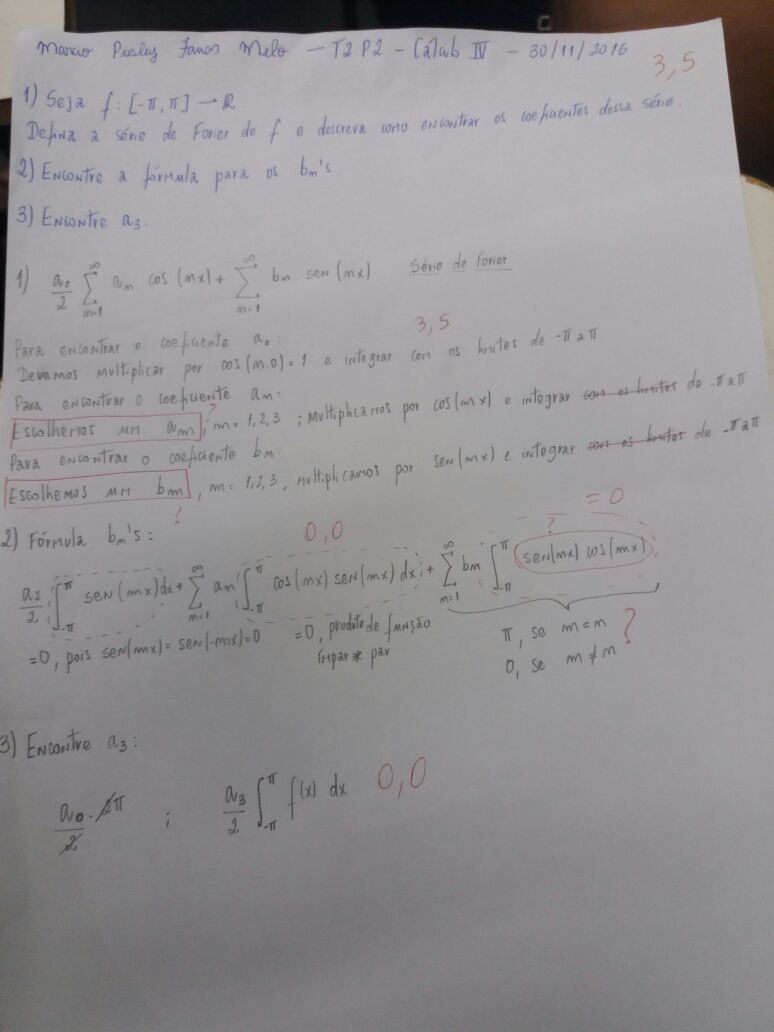 Marcio Presley Farias Melo — T2 P2 - Cálculo IV - 30/11/2016
3,5
1) Seja f: [-π, π] → ℝ.
Defina a série de Forier de f e descreva como encontrar os coeficientes dessa série.
2) Encontre a fórmula para os bm's.
3) Encontre a3.
1) a0/2 ∑_{m=1}^{∞} am cos (mx) + ∑_{m=1}^{∞} bm sen (mx) Série de Forier
Para encontrar o coeficiente a0: 3,5
Devemos multiplicar por cos(m.0) = 1 e integrar com os limites de -π a π
Para encontrar o coeficiente am:
Escolhemos um am ; m = 1,2,3 ; Multiplicamos por cos(mx) e integrar com os limites de -π a π
?
Para encontrar o coeficiente bm:
Escolhemos um bm , m = 1,2,3, multiplicamos por sen(mx) e integrar com os limites de -π a π
?
2) Fórmula bm's: 0,0 = 0
?
a2/2 ∫_{-π}^{π} sen(mx)dx + ∑_{m=1}^{∞} am ∫_{-π}^{π} cos(mx) sen(mx) dx; + ∑_{m=1}^{∞} bm ∫_{-π}^{π} sen(mx) cos(mx)
=0, pois sen(mx) = sen(-mx) = 0 =0, produto de função π, se m = m ?
ímpar * par 0, se m ≠ m
3) Encontre a3:
a0/2 · 2π ; a3/2 ∫_{-π}^{π} f(x) dx 0,0